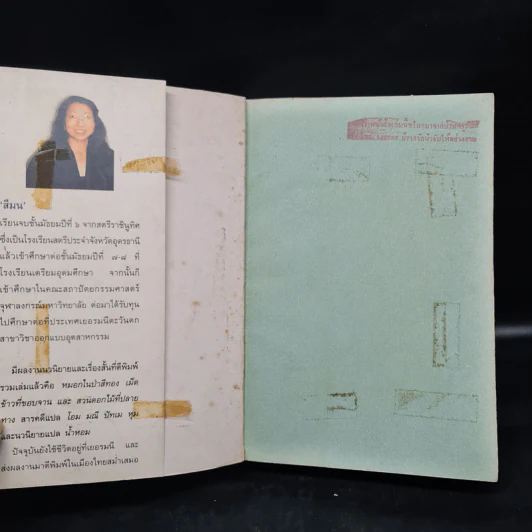 'สีมน'
เรียนจบชั้นมัธยมปีที่ ๖ จากสตรีราชินูทิศ
ซึ่งเป็นโรงเรียนสตรีประจำจังหวัดอุดรธานี
แล้วเข้าศึกษาต่อชั้นมัธยมปีที่ ๗-๘ ที่
โรงเรียนเตรียมอุดมศึกษา จากนั้นก็
เข้าศึกษาในคณะสถาปัตยกรรมศาสตร์
จุฬาลงกรณ์มหาวิทยาลัย ต่อมาได้รับทุน
ไปศึกษาต่อที่ประเทศเยอรมนีตะวันตก
สาขาวิชาออกแบบอุตสาหกรรม
มีผลงานนวนิยายและเรื่องสั้นที่ตีพิมพ์
รวมเล่มแล้วคือ หมอกในป่าสีทอง เม็ด
ข้าวที่ขอบจาน และ สวนดอกไม้ที่ปลาย
ทาง สารคดีแปล โอม มณี ปัทเม หุม
และนวนิยายแปล น้ำหอม
ปัจจุบันยังใช้ชีวิตอยู่ที่เยอรมนี และ
ส่งผลงานมาตีพิมพ์ในเมืองไทยสม่ำเสมอ